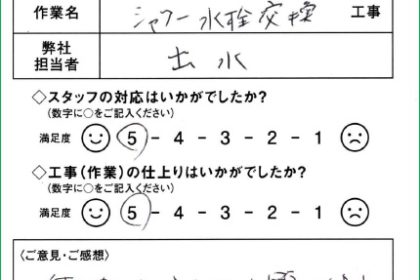 作業名 シャワー水栓交換 工事
弊社
担当者 出水
◇スタッフの対応はいかがでしたか?
(数字に○をご記入ください)
満足度 5 - 4 - 3 - 2 - 1
◇工事(作業)の仕上りはいかがでしたか?
(数字に○をご記入ください)
満足度 5 - 4 - 3 - 2 - 1
〈ご意見・ご感想〉